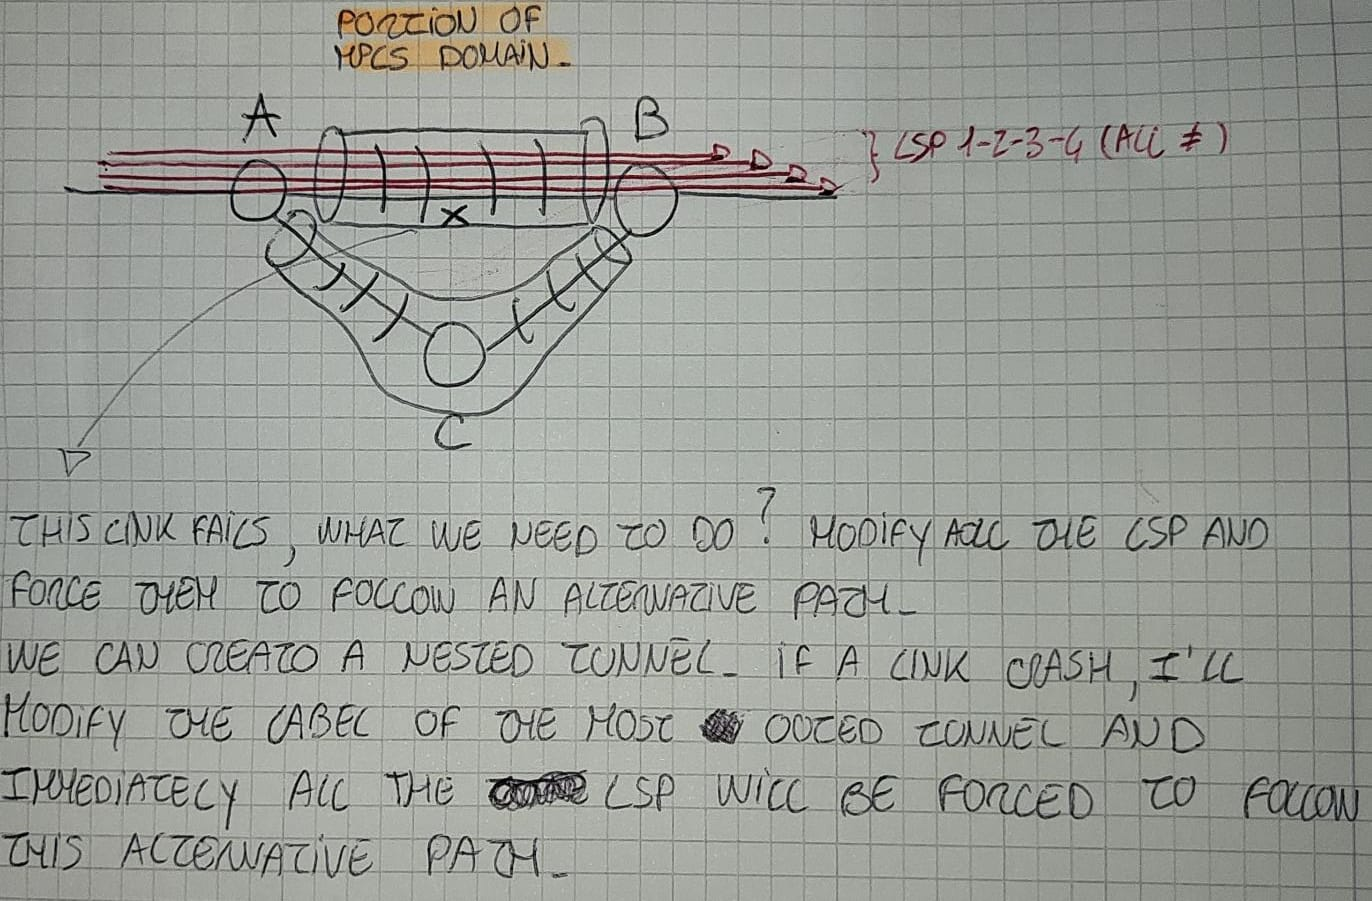 PORTION OF
MPLS DOMAIN-
A
B
} LSP 1-2-3-4 (ALL ≠)
X
C
THIS LINK FAILS, WHAT WE NEED TO DO? MODIFY ALL THE LSP AND
FORCE THEM TO FOLLOW AN ALTERNATIVE PATH-
WE CAN CREATO A NESTED TUNNEL- IF A LINK CRASH, I'LL
MODIFY THE LABEL OF THE MOST OOTED TUNNEL AND
IMMEDIATELY ALL THE LSP WILL BE FORCED TO FOLLOW
THIS ALTERNATIVE PATH-